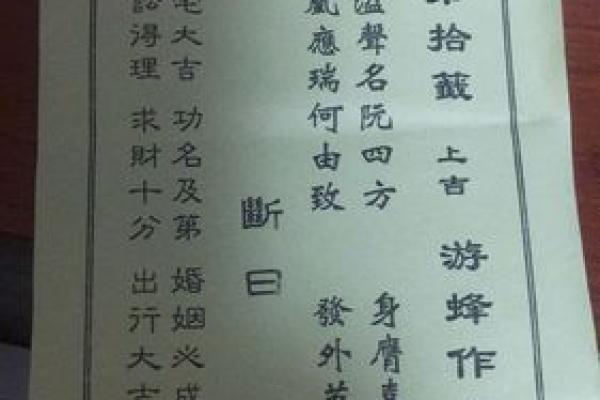 拾籤 上吉 游蜂作
溢聲名阮四方 身膺
應瑞何由致 發外
斷曰
宅大吉 功名及第 婚姻必成
得理 求財十分 出行大吉